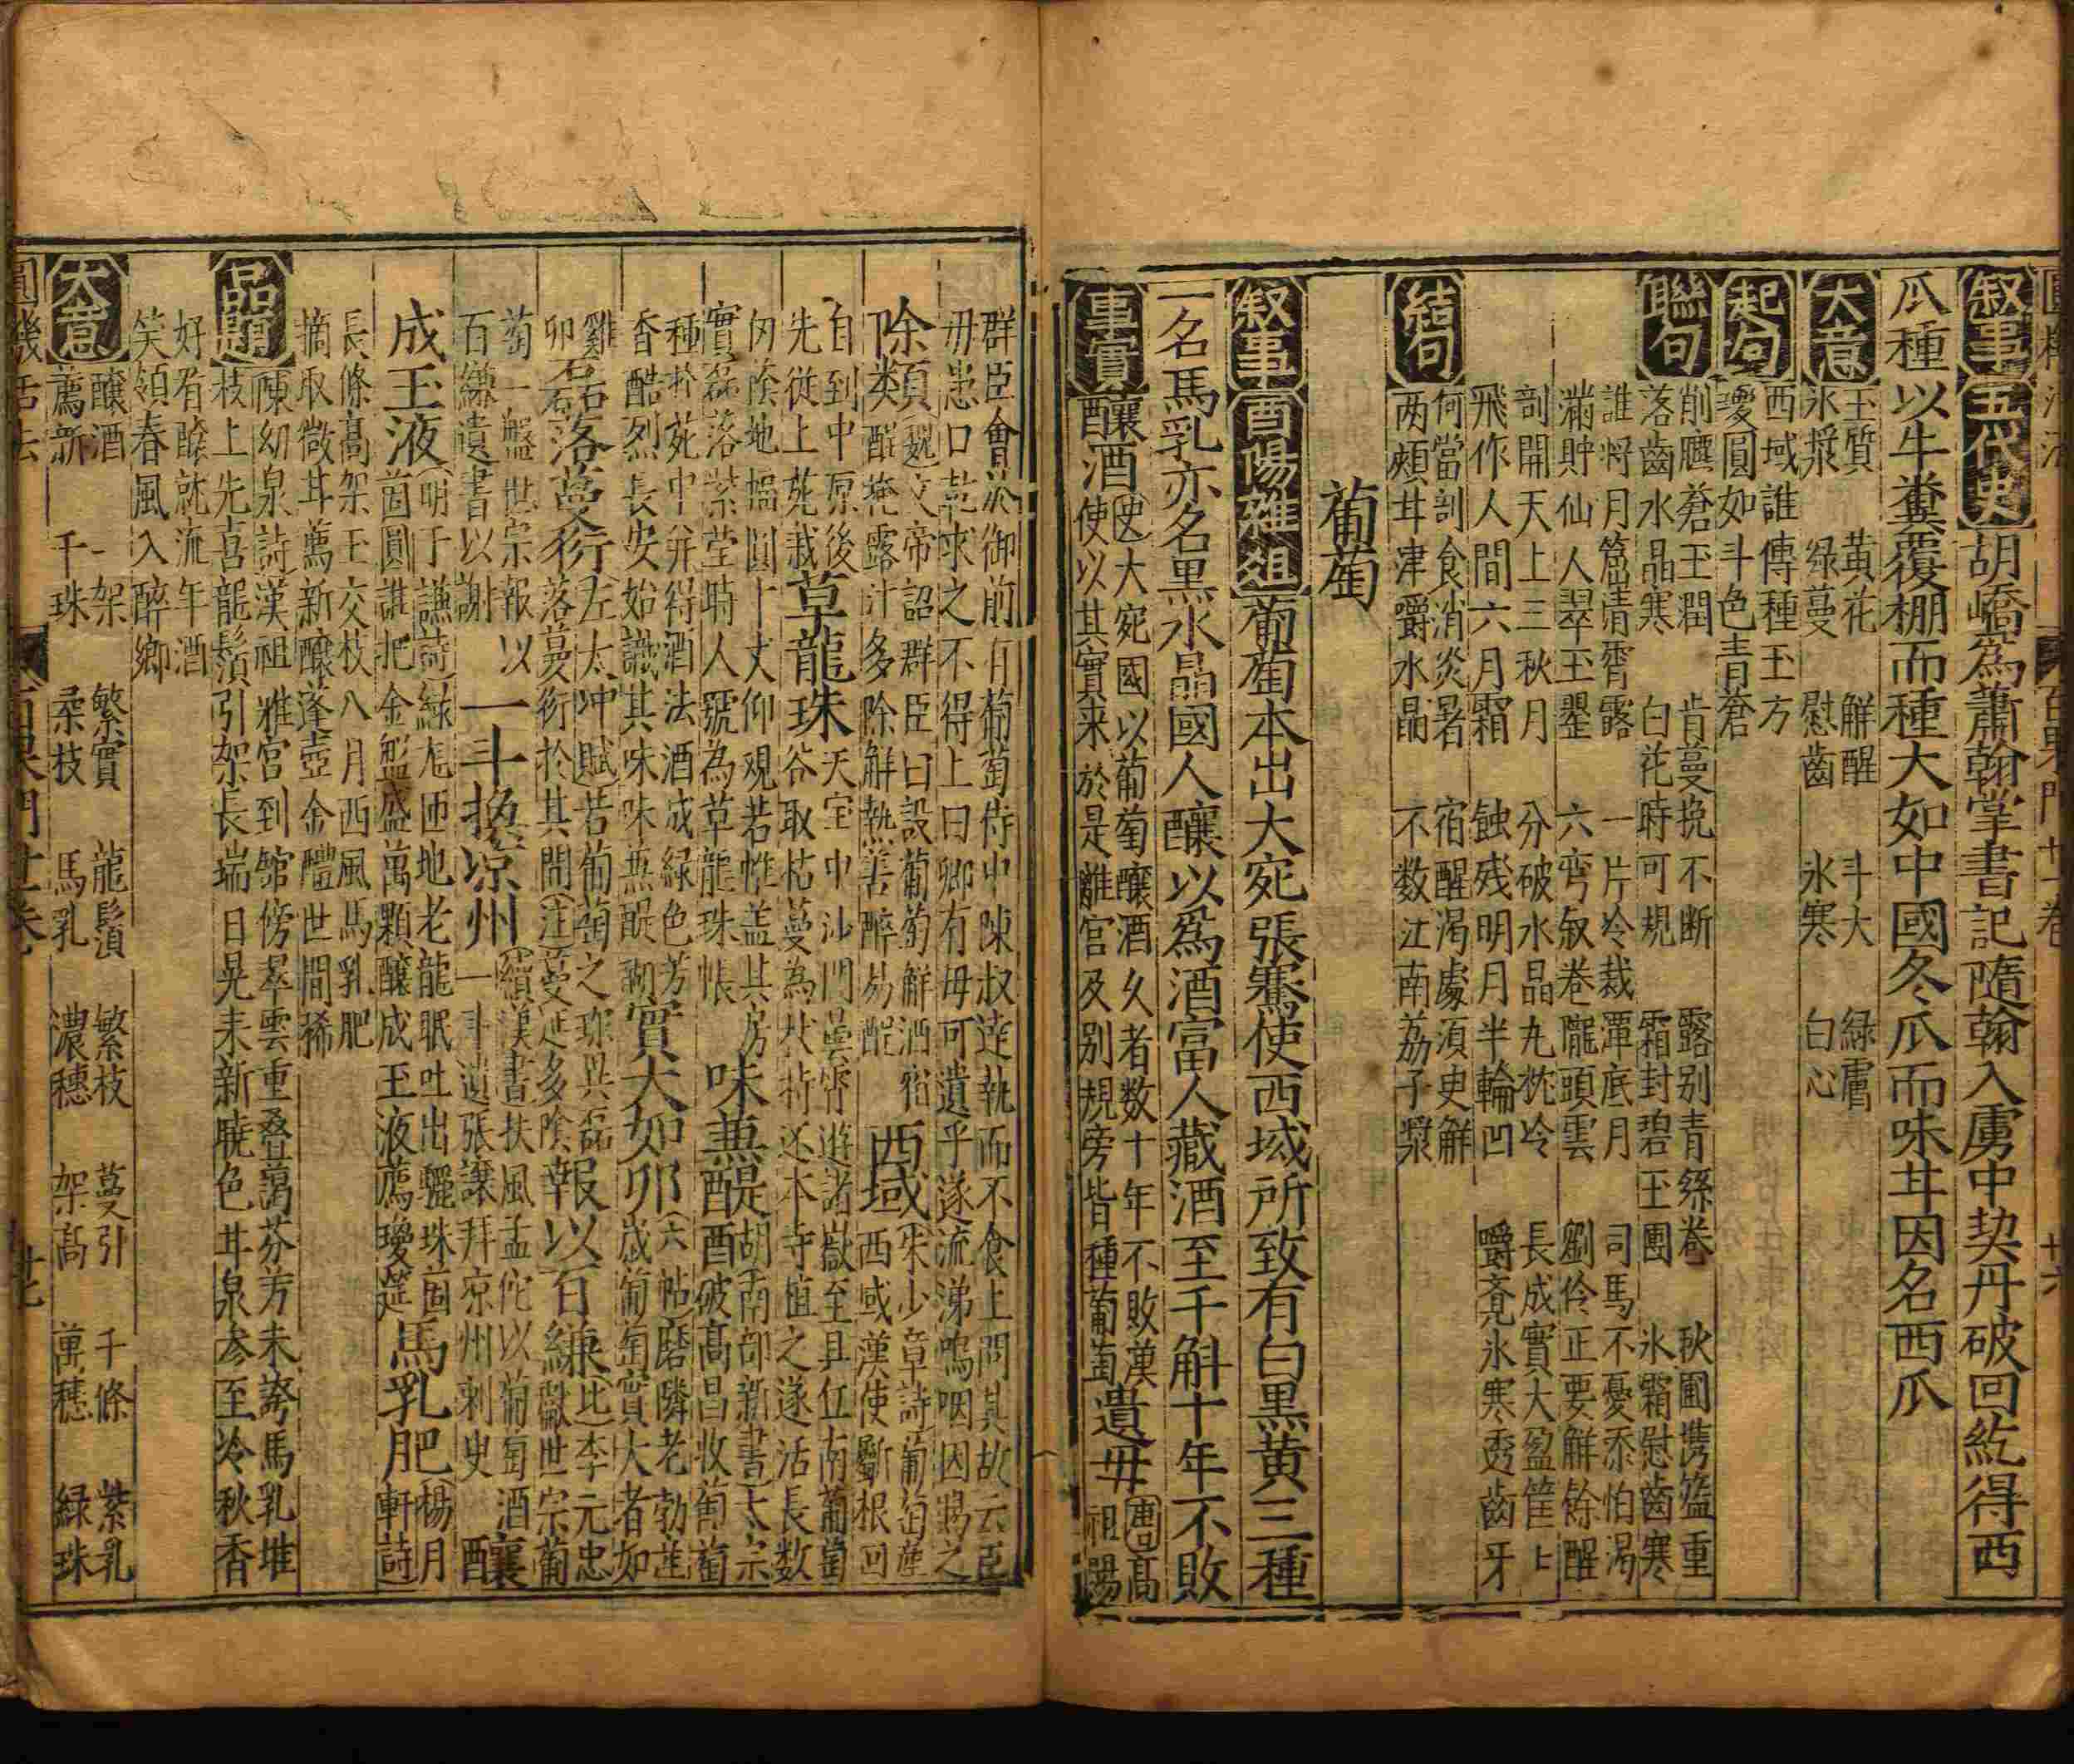 敍事 五代史 胡嶠爲蕭翰掌書記隨翰入虜中契丹破回紇得西
瓜種以牛糞覆棚而種大如中國冬瓜而味甘因名西瓜
大意 玉質 黄花 解醒 斗大 緑膚
氷漿 緑蔓 慰齒 氷寒 白心
起句 西域誰傳種玉方
璦圓如斗色青蒼
聯句 削膺蒼玉潤 肯蔓挽不断 露别青絲卷 秋圃携籃重
落齒水晶寒 白花時可規 霜封碧玉團 氷霜慰齒寒
誰将月窟清霄露 一片冷裁潭底月 司馬不憂添怕渴
滿貯仙人翠玉罌 六彎叙卷隴頭雲 劉伶正要解餘醒
剖開天上三秋月 分破水晶九枕冷 長成實大盈筐上
飛作人間六月霜 蝕残明月半輪凹 嚼吝氷寒透齒牙
結句 何當剖食消炎暑 宿醒渴處須史解
两頰甘津嚼水晶 不数江南荔子漿
葡萄
敍事 酉陽雜俎 葡萄本出大宛張騫使西域所致有白黒黄三種
一名馬乳亦名黒水晶國人釀以爲酒富人藏酒至千斛十年不敗
事實 釀酒 史大宛國以葡萄釀酒久者数十年不敗漢
使以其實来於是離宫及别規旁皆種葡萄 遺母 唐高
祖賜
群臣會於御前有葡萄侍中陳叔達執而不食上問其故云臣
毋患口乾求之不得上曰卿有母可遺乎遂流涕嗚咽因賜之
除煩 魏文帝詔群臣曰設葡萄解酒宿
類酲掩露汁多除解熱善醉易酲 西域 宋少章詩葡萄薤
西域漢使斸根囘
自到中原後 天宝中沙門曇霄遊諸嶽至具仜南葡萄
先從上苑栽 草龍珠 谷取枯蔓為杖持还本寺植之遂活長数
仭陰地搵圓十丈仰观若帷盖其房
實磊落紫莹時人號為草龍珠帳 味兼醍 胡南部新書太宗
酉破髙昌收葡萄
種扵苑中并得酒法酒成緑色芳
香酷烈長安始識其味味兼醍翮 實大如卯 六帖磨隣老勃薩
歳葡萄實大者如
雞
卯 磊落蔓衍 左太冲賦若葡萄之琛異磊
落蔓衍於其間注蔓延多陰 報以百縑 比李元忠
獻世宗葡
萄一盤世宗報以
百縑遺書以謝 一斗換凉州 續漢書扶風孟佗以葡萄酒
一斗遺張讓拜凉州刺史 釀
成玉液 明于謙詩緑尨匝地老龍眠吐出驪珠茴
茴圓誰把金盤盛萬顆釀成玉液薦璦筵 馬乳肥 楊月
軒詩
長條髙架玉交枝八月西風馬乳肥
摘取微甘薦新釀蓬壺金醴世間稀
品題 陳幼泉詩漢祖雅宫到舘傍翠雲重叠萬芬芳未誇馬乳堆
枝上先喜龍鬚引架長端日晃耒新暁色甘泉叅至冷秋香
好看醅就流年酒
笑領春風入醉鄉
大意 釀酒 一架 繁實 龍鬚 繁枝 蔓引 千條 紫乳
薦新 千珠 柔枝 馬乳 濃穗 架髙 萬穂 緑珠